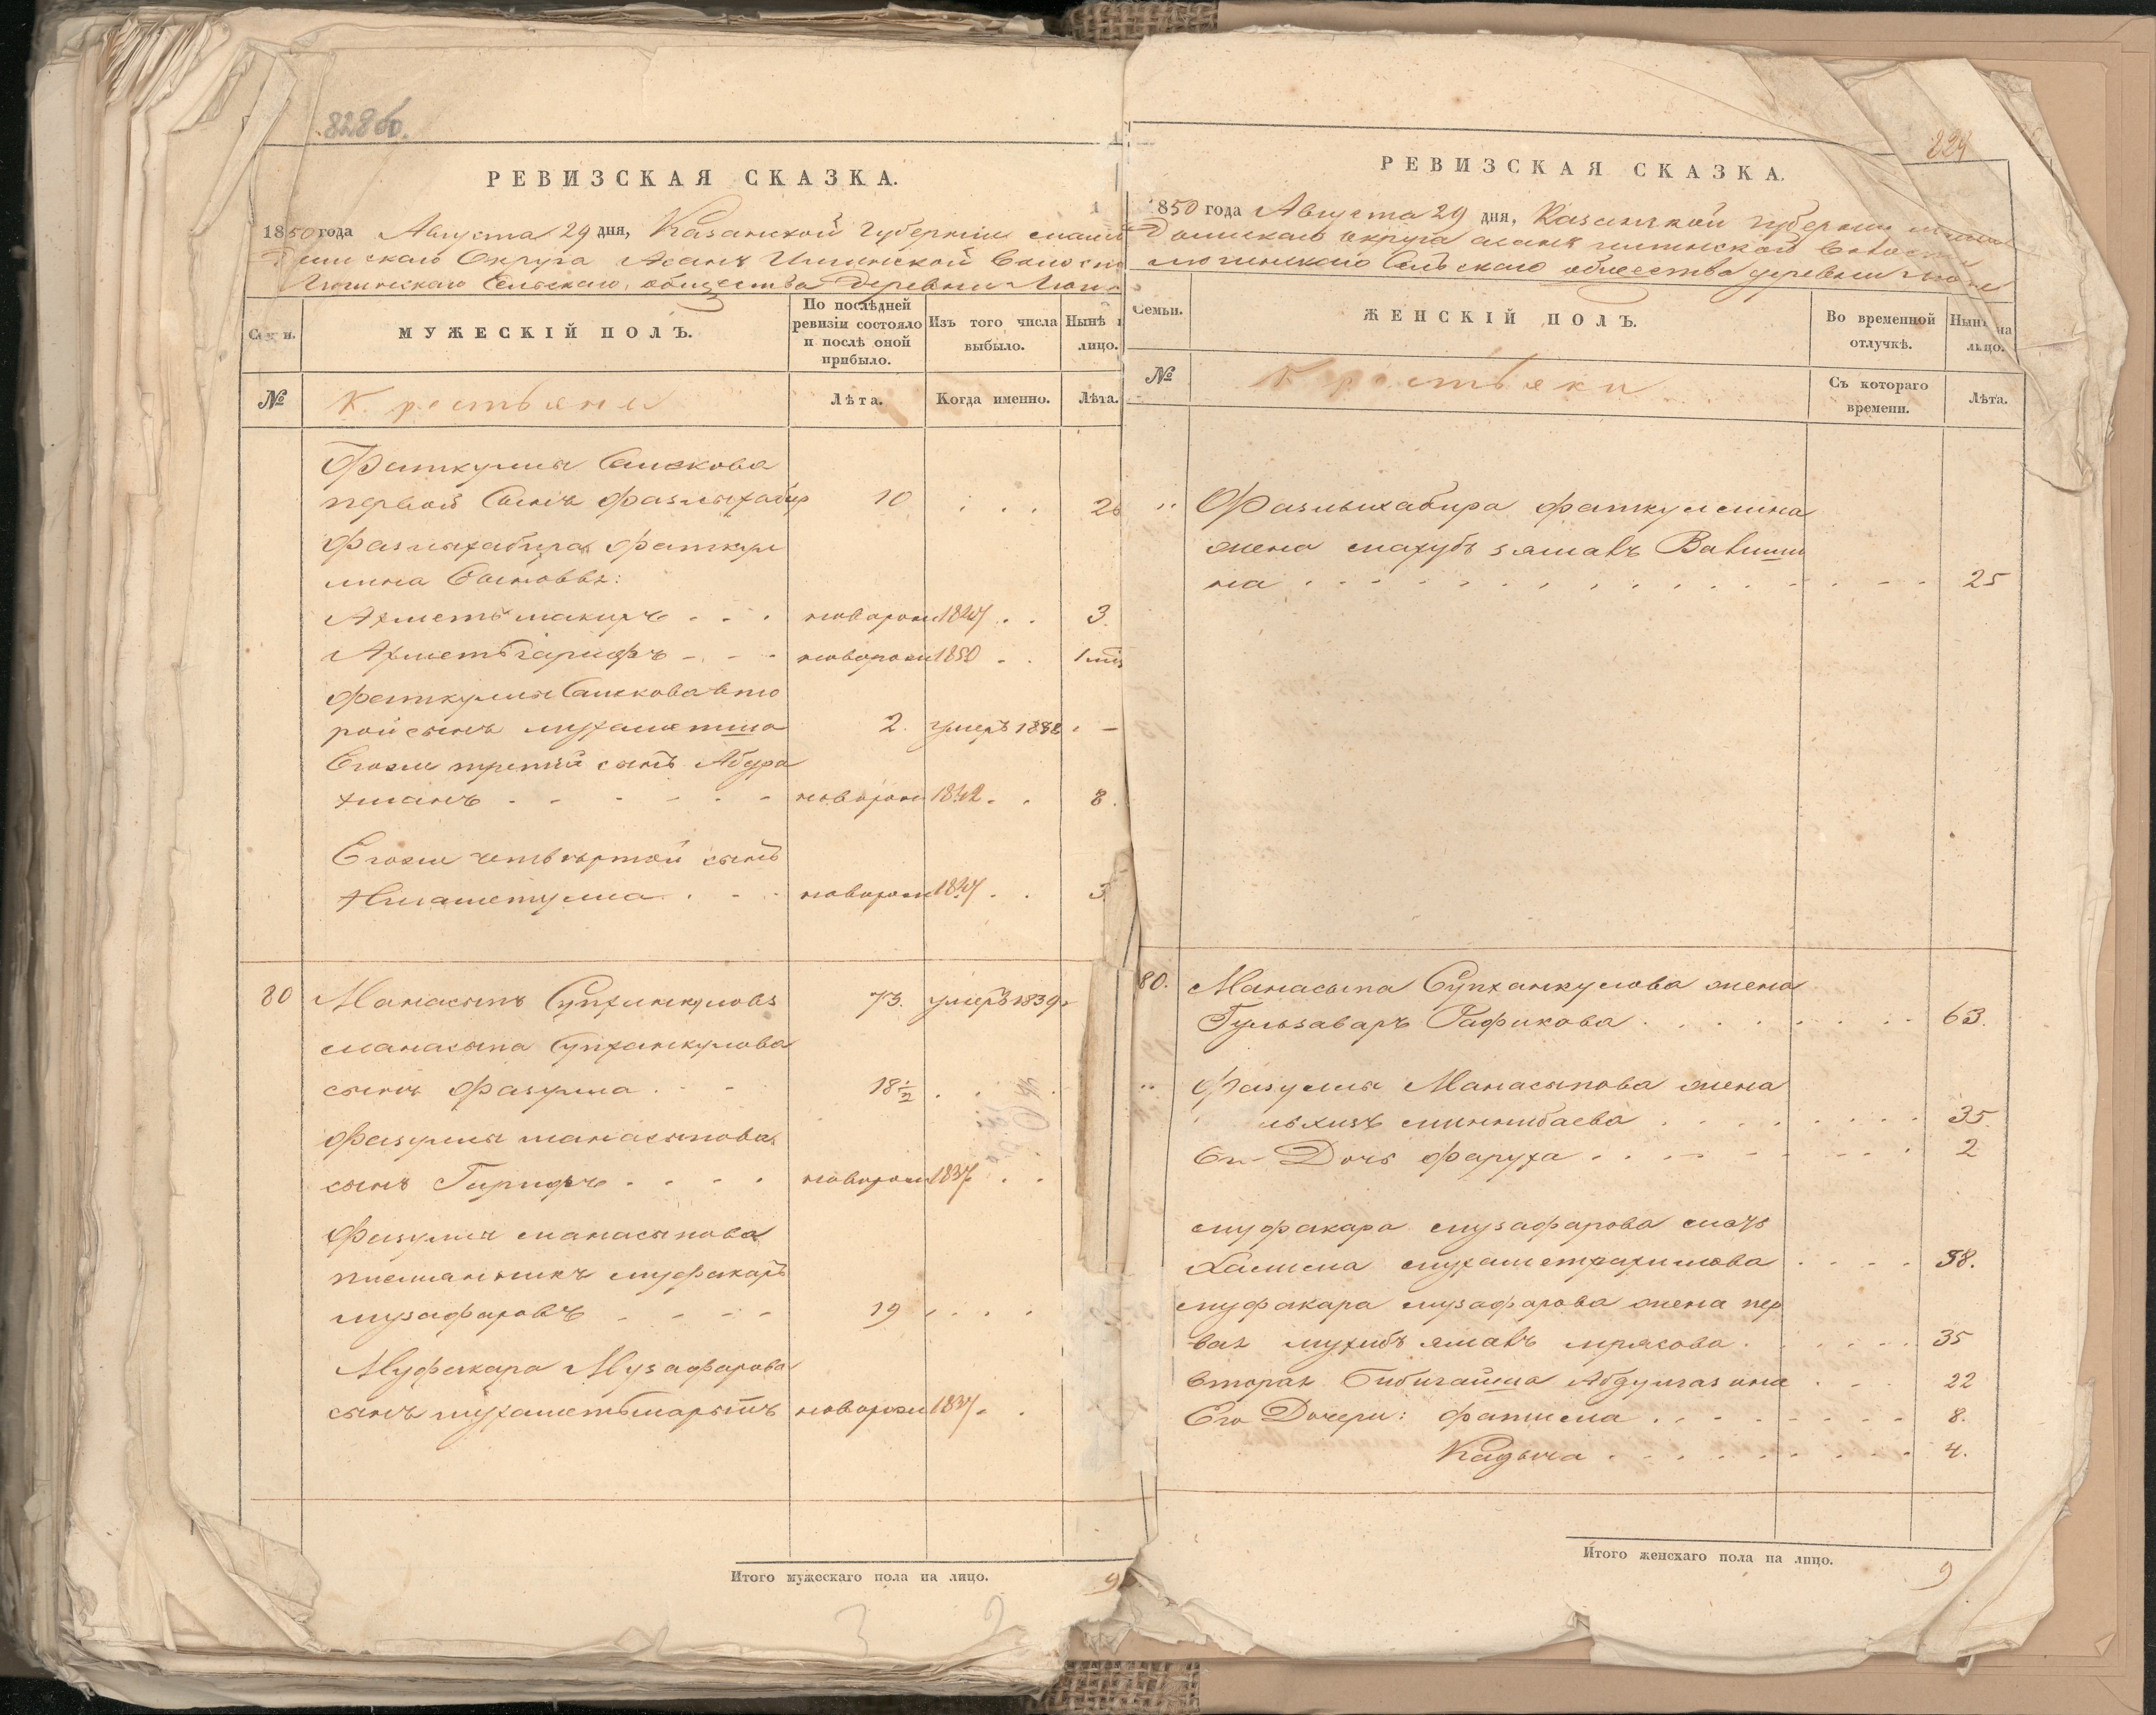 828 об.
РЕВИЗСКАЯ СКАЗКА.
1850 года Августа 29 дня, Казанской Губернии
Округа Асанъ Илгинской
Сельскаго общества Деревни
Семьи.
МУЖЕСКІЙ ПОЛЪ.
По послѣдней ревизіи состояло и послѣ оной прибыло.
Изъ того числа выбыло.
Нынѣ на лицо.
№
Крестьяне
Лѣта.
Когда именно.
Лѣта.
Фаткуллы Саискова
первой Сынъ Фазлыхабир 10 . . . 2
Фазлыхабира Фаткул
лина Сыновья:
Ахметь шакиръ . . . новорож 1847 . . 3.
Ахметьгарифъ - - - новорож 1850 . . 1 мѣс
Фаткуллы Саискова вто
рой сынъ мухаметша 2. умеръ . -
Егоже третій сынъ Абдра
хманъ - - - - - - новорож 1842 . . 8.
Егоже четвертой сынъ
Нигаметулла . - - новорож 1847 . . 3
80 Манасыпъ Супханкуловъ 73. умеръ 1839
манасыпа Супханкулова
сынъ Фазулла . - - 18 1/2 . . .
Фазуллы манасыпова
сынъ Гарифъ . . . . новорож 1837 . .
Фазуллы манасыпова
племянникъ муфакаръ
музафаровъ - - - - 19 . . . .
Муфакара Музафарова
сынъ мухаметьшарыпъ новорож 1837 . .
Итого мужескаго пола на лицо. 9
3 2
229
РЕВИЗСКАЯ СКАЗКА.
1850 года Августа 29 дня, Казанской губернии
округа асанъ илгинской волости
Сельскаго общества деревни
Семьи.
ЖЕНСКІЙ ПОЛЪ.
Во временной отлучкѣ.
Нынѣ на лицо.
№
Крестьяки
Съ котораго времени.
Лѣта.
" Фазлыхабира фаткуллина
жена махубъ зямалъ Валиши
на . . . . . . . . . . . 25
80. Манасыпа Супханкулова жена
Гульзаваръ Рафикова . . . . . . . . 63.
" Фазуллы Манасыпова жена
миннибаева . . . . . . . . 35.
Ея Дочь фаруха . . . . . . . . 2
муфакара музафарова мать
Халиса мухаметрахимова . . . . 58.
муфакара музафарова жена пер
вая мухибъ ямалъ мрясова . . . . . . 35
вторая Бибигайша Абдулгазина . . - 22
Его Дочери: фатима . . . . . . . . 8.
Кадыча . . . . . . . . 4.
Итого женскаго пола на лицо. 9